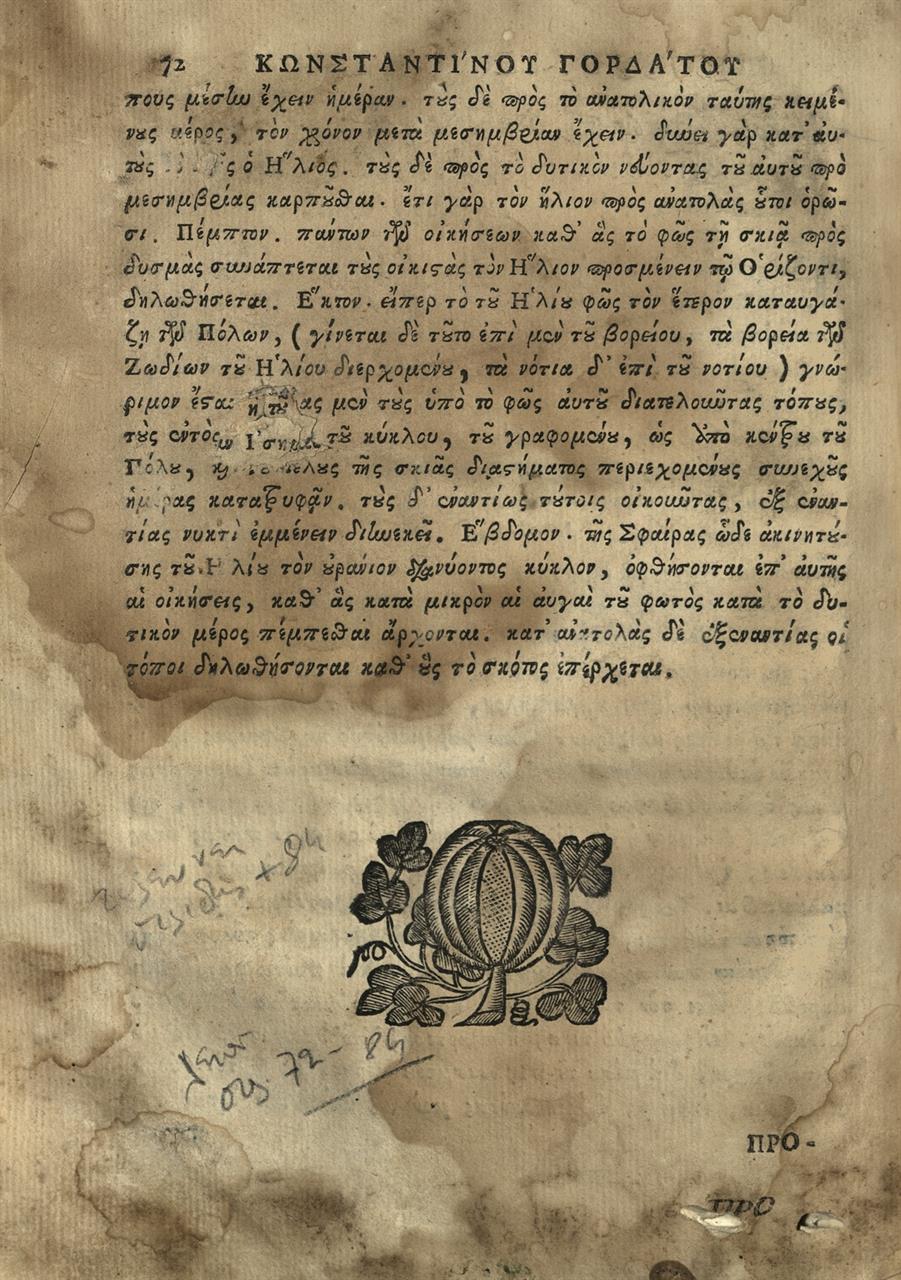 72 ΚΩΝΣΤΑΝΤΙ´ΝΟΥ ΓΟΡΔΑ´ΤΟΥ
πους μέσην ἔχειν ἡμέραν. τοὺς δὲ πρὸς τὸ ἀνατολικὸν ταύτης κειμέ-
νους μέρος, τὸν χρόνον μετὰ μεσημβρίαν ἔχειν. δύσει γὰρ κατ' αὐ-
τοὺς ὁ Ἥλιος. τοὺς δὲ πρὸς τὸ δυτικὸν νεύοντας τοῦ αὐτοῦ πρὸ
μεσημβρίας καρποῦσθαι. ἔτι γὰρ τὸν ἥλιον πρὸς ἀνατολὰς οὗτοι ὁρῶ-
σι. Πέμπτον. πάντων τῶν οἰκήσεων καθ' ἃς τὸ φῶς τῇ σκιᾷ πρὸς
δυσμὰς συνάπτεται τοὺς οἰκιστὰς τὸν Ἥλιον προσμένειν τῷ Ὁρίζοντι,
δηλωθήσεται. Ἕκτον. εἴπερ τὸ τοῦ Ἡλίου φῶς τὸν ἕτερον καταυγά-
ζῃ τῶν Πόλων, ( γίνεται δὲ τοῦτο ἐπὶ μὲν τοῦ βορείου, τὰ βορεία τῶν
Ζωδίων τοῦ Ἡλίου διερχομένου, τὰ νότια δ' ἐπὶ τοῦ νοτίου ) γνώ-
ριμον ἔσται μὲν τοὺς ὑπὸ τὸ φῶς αὐτοῦ διατελοῦντας τόπους,
τοὺς ἐντὸς τοῦ κύκλου, τοῦ γραφομένου, ὡς ὑπὸ κέντρου τοῦ
Πόλου, τῆς σκιᾶς διαστήματος περιεχομένους συνεχῶς
ἡμέρας κατατρυφᾷν. τοὺς δ' ἐναντίως τούτοις οἰκοῦντας, ἐξ ἐναν-
τίας νυκτὶ ἐμμένειν διηνεκεῖ. Ἕβδομον. τῆς Σφαίρας ὧδε ἀκινητού-
σης τοῦ Ἡλίου τὸν οὐράνιον διανύοντος κύκλον, ὀφθήσονται ἐπ' αὐτῆς
αἱ οἰκήσεις, καθ' ἃς κατὰ μικρὸν αἱ αὐγαὶ τοῦ φωτὸς κατὰ τὸ δυ-
τικὸν μέρος πέμπεσθαι ἄρχονται. κατ' ἀνατολὰς δὲ ἐξεναντίας οἱ
τόποι δηλωθήσονται καθ' οὓς τὸ σκότος ἐπέρχεται.
72 - 84
ΠΡΟ-
ΠΡΟ